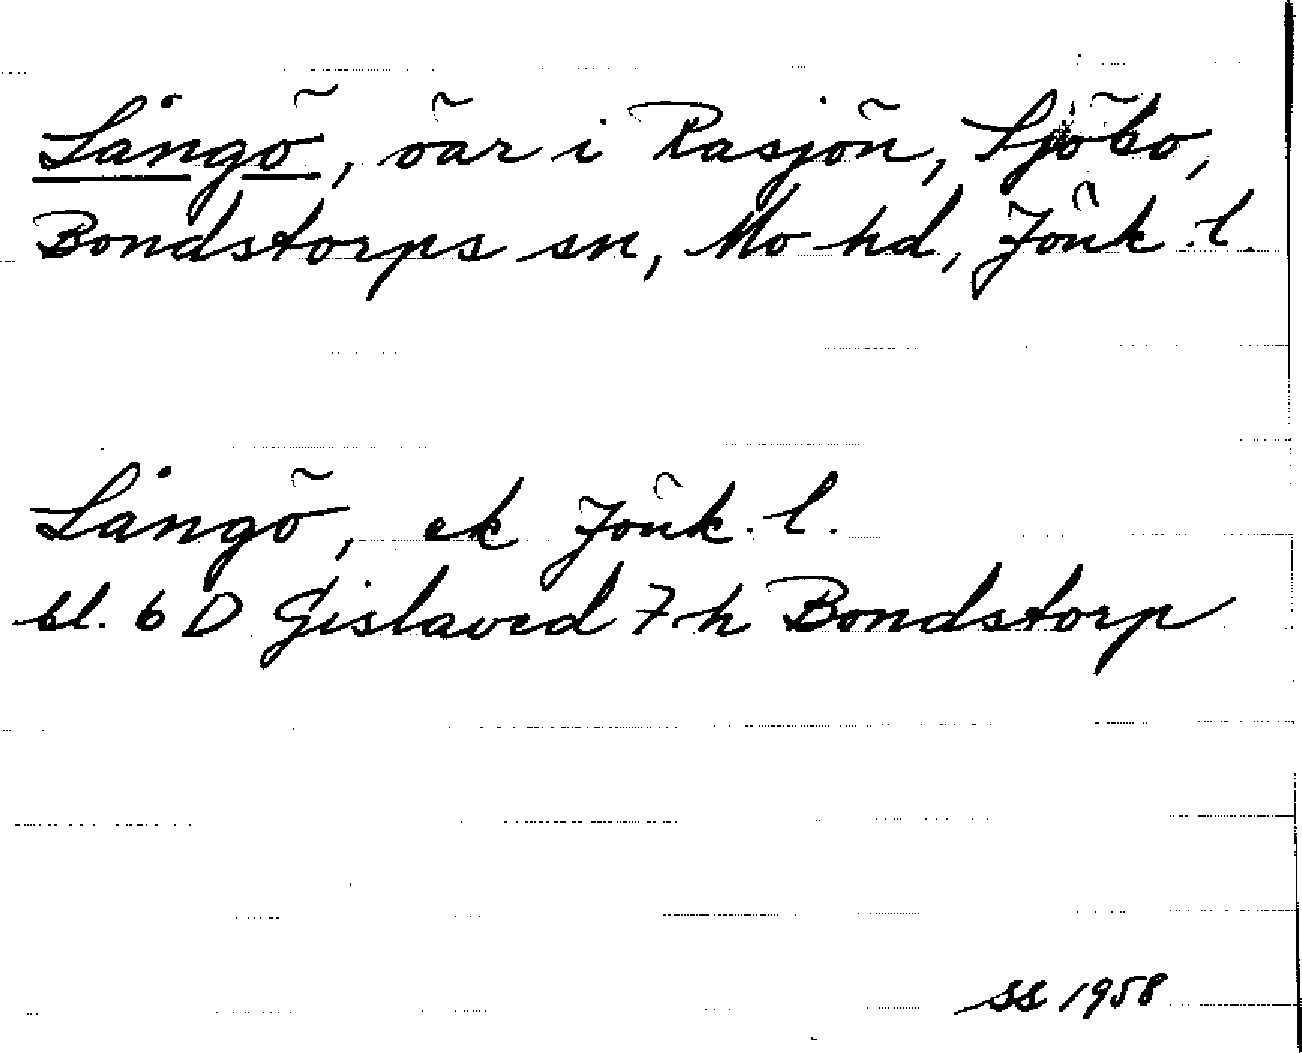 Långö, öar i Rasjön, Sjöbo,
Bondstorps sn, Mo hd, Jönk. l.
Långö, ek Jönk. l.
bl. 6 D Gislaved 7 h Bondstorp
SS 1958